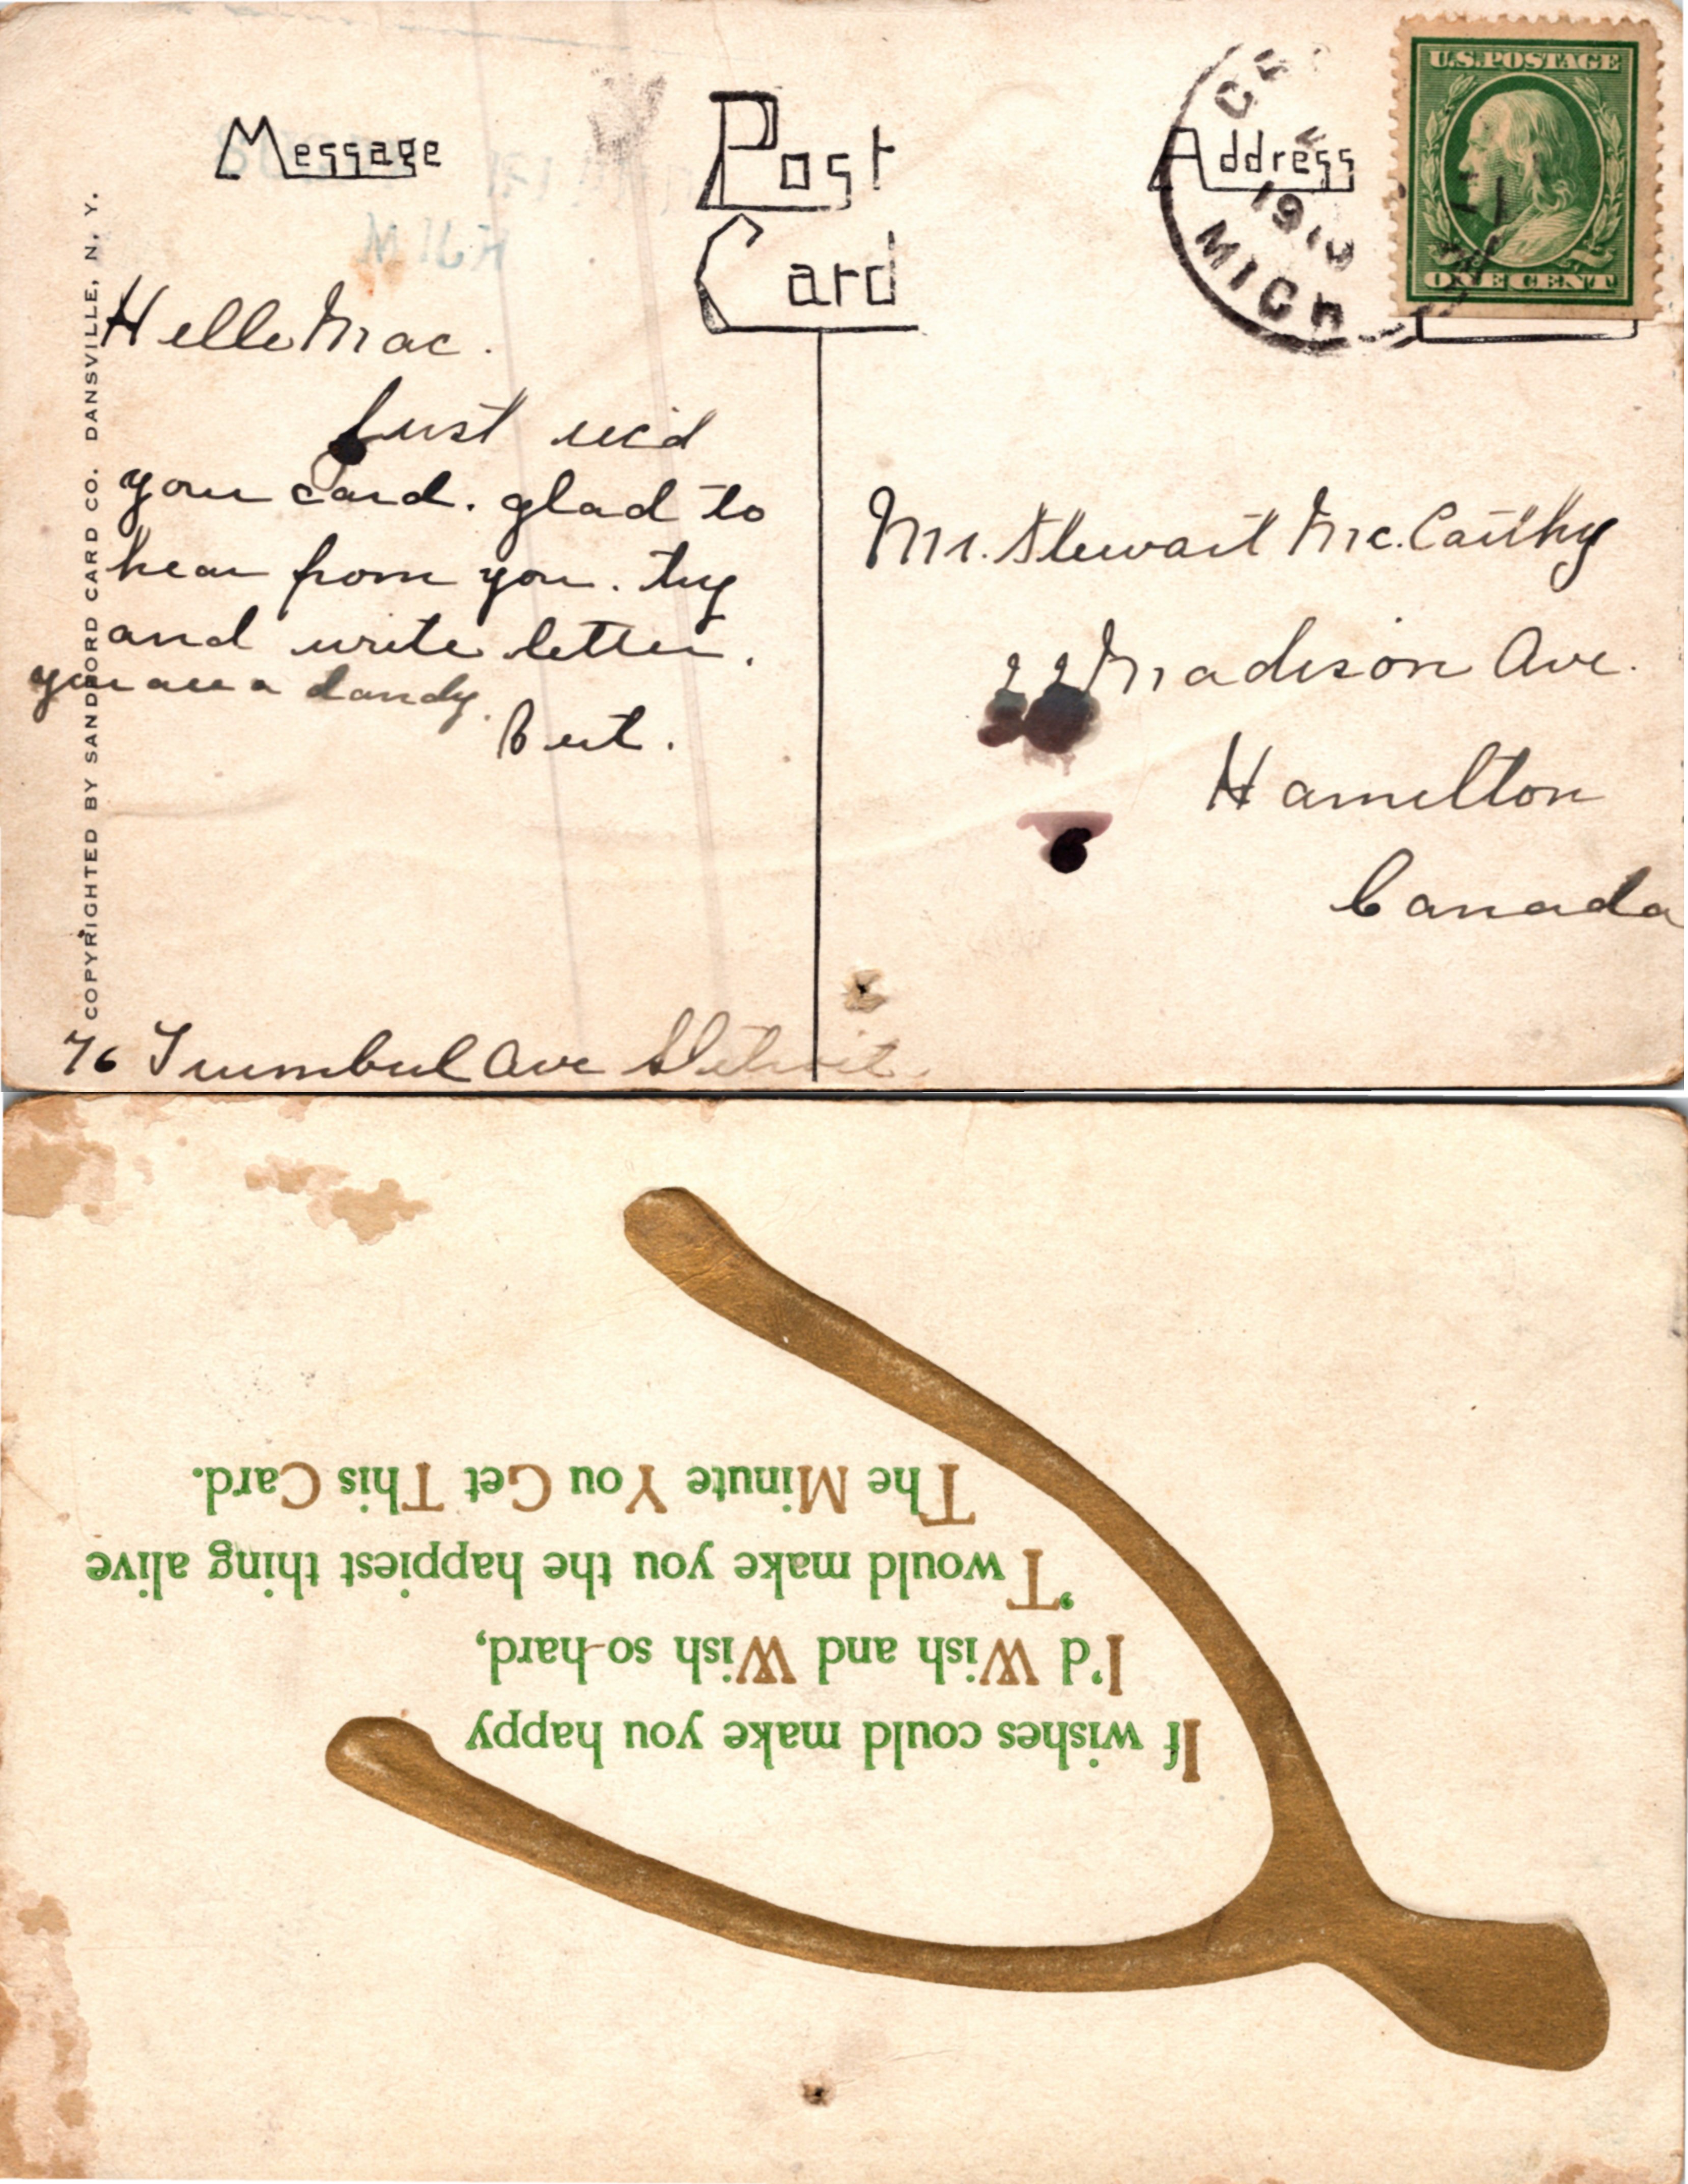 Message
Post
Card
Address
U.S. POSTAGE
ONE CENT
1910
MICH
MICH
COPYRIGHTED BY SANDFORD CARD CO. DANSVILLE, N. Y.
Hello Mac.
Just rec'd
your card. glad to
hear from you. try
and write letter.
you are a dandy.
Bert.
76 Trumbul Ave Detroit.
Mr. Stewart Mc.Carthy
22 Madison Ave.
Hamilton
Canada
If wishes could make you happy
I'd Wish and Wish so hard,
'Twould make you the happiest thing alive
The Minute You Get This Card.